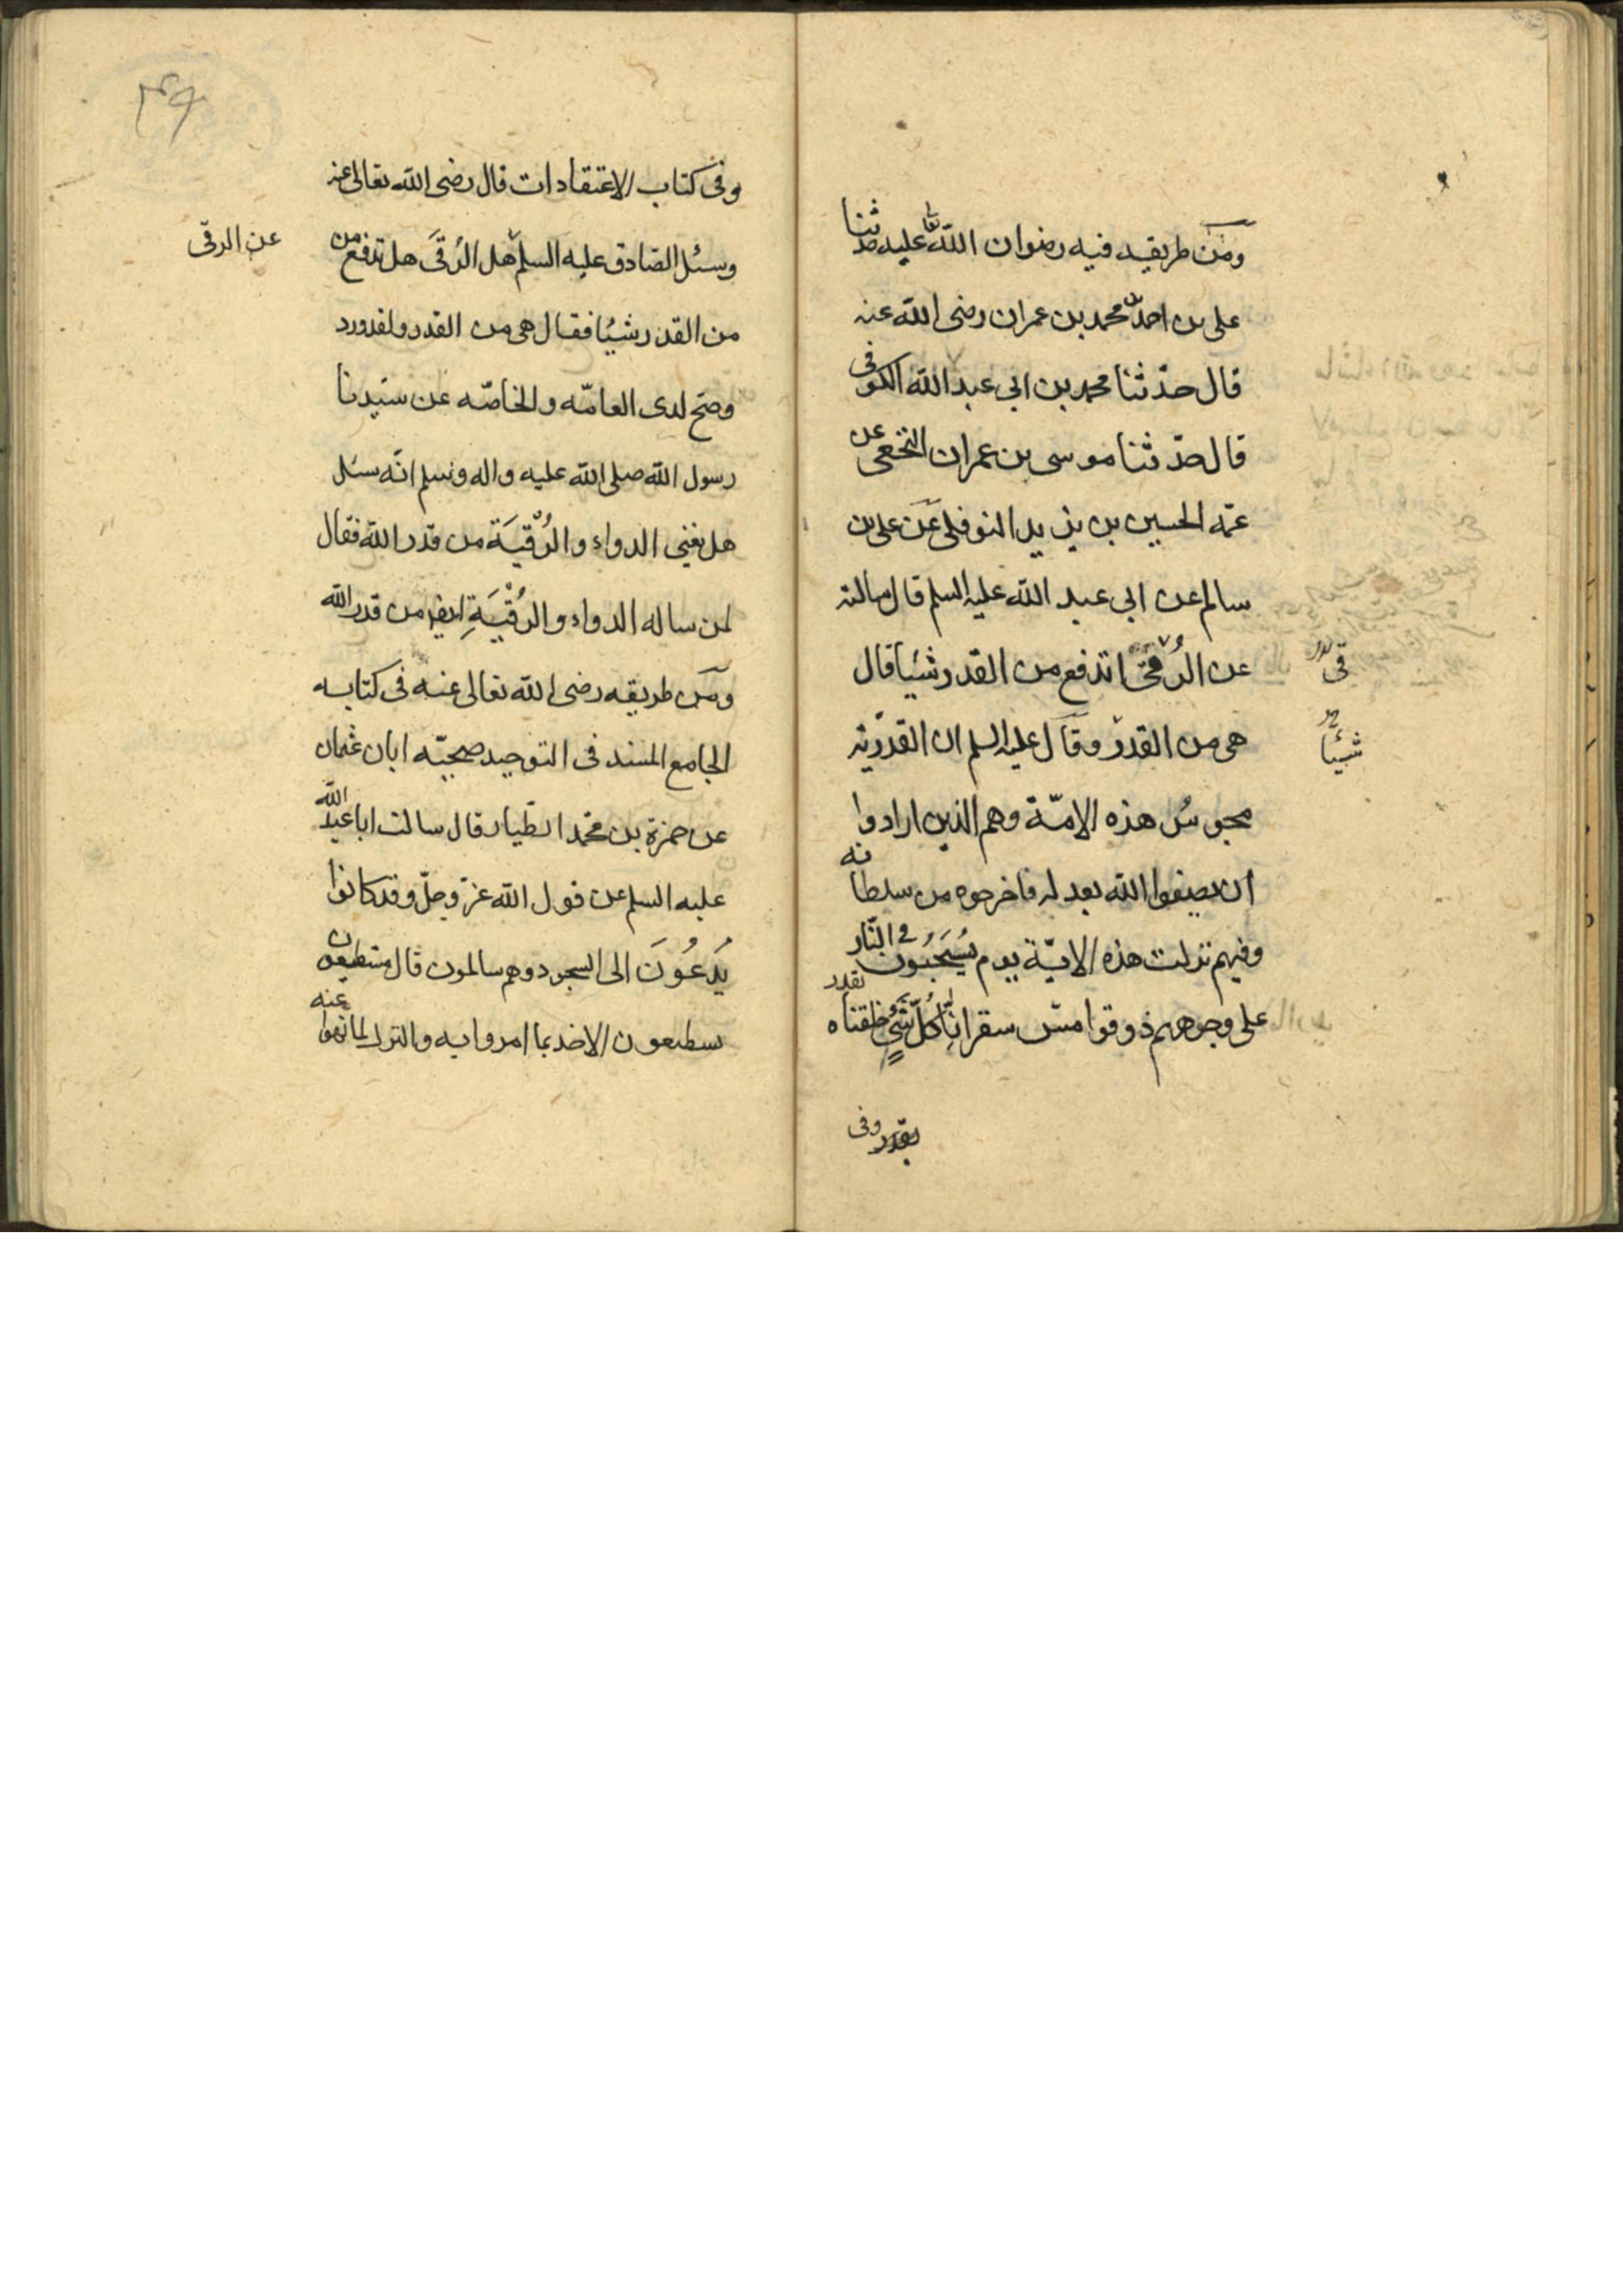 ومن طريقه فيه رضوان الله تعا عليه حدثنا
على بن احمد بن محمد بن عمران رضى الله عنه
قال حدّثنا محمد بن ابى عبد الله الكوفى
قال حدّثنا موسى بن عمران النخعى عن
عمّه الحسين بن يزيد النوفلى عن على بن
سالم عن ابى عبد الله عليه السلم قال سالته
عن الرُقى اتدفع من القدر شيئا قال
هى من القدر وقال عليه السلم ان القدريّة
مجوسُ هذه الامّة وهم الذين ارادوا
ان يصفوا الله بعدله فاخرجوه من سلطانه
وفيهم نزلت هذه الايّة يوم يُسحَبُون فى النّار
على وجوههم ذوقوا مسّ سقر انّا كُلّ شَىْءٍ خلقناه بقدر
بقدر وفى
قى
شيئا
وفى كتاب الاعتقادات قال رضى الله تعالى عنه
وسئل الصادق عليه السلم هل الرُقَى هل تدفع من
عن الرقى
من القدر شيئا فقال هى من القدر ولقد ورد
وصحّ لدى العامّه والخاصّه عن سيّدنا
رسول الله صلى الله عليه واله وسلم انّه سئل
هل يغنى الدواء والرُقْيَة من قدر الله فقال
لمن ساله الدواء والرُقْيَةِ ايضا من قدر الله
ومن طريقه رضى الله تعالى عنه فى كتابه
الجامع المسند فى التوحيد صحيحيّه ابان عثمان
عن حمزة بن محمّد الطيار قال سالت ابا عبد الله
عليه السلم عن قول الله عزّ وجلّ وقد كانوا
يُدعُونَ الى السجود وهم سالمون قال مستطيعون
يستطيعون الاخذ بما امروا به والترك لما نهوا عنه